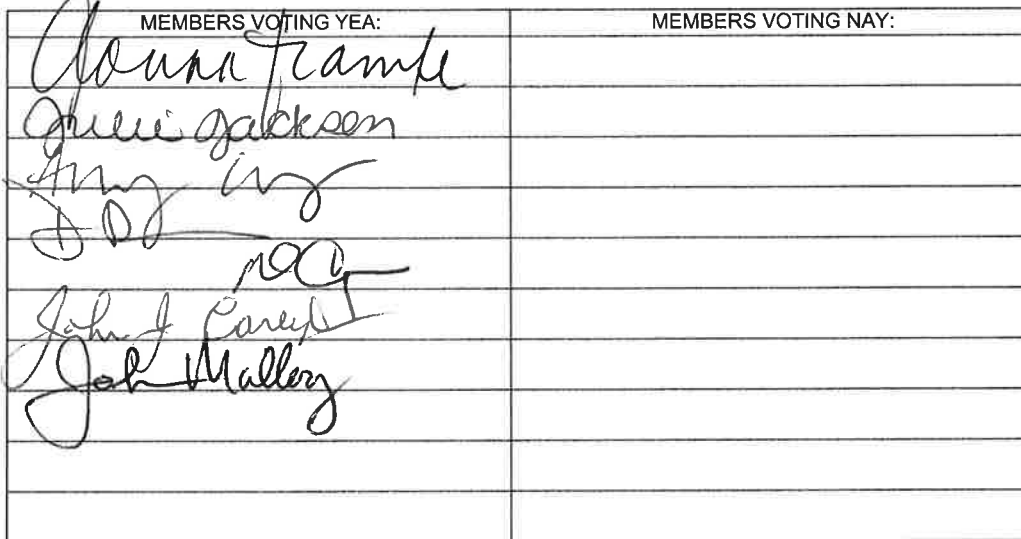 MEMBERS VOTING YEA: MEMBERS VOTING NAY:
Donna Trampe
Julie Jackson
Amy
John J Carey
John Mallery